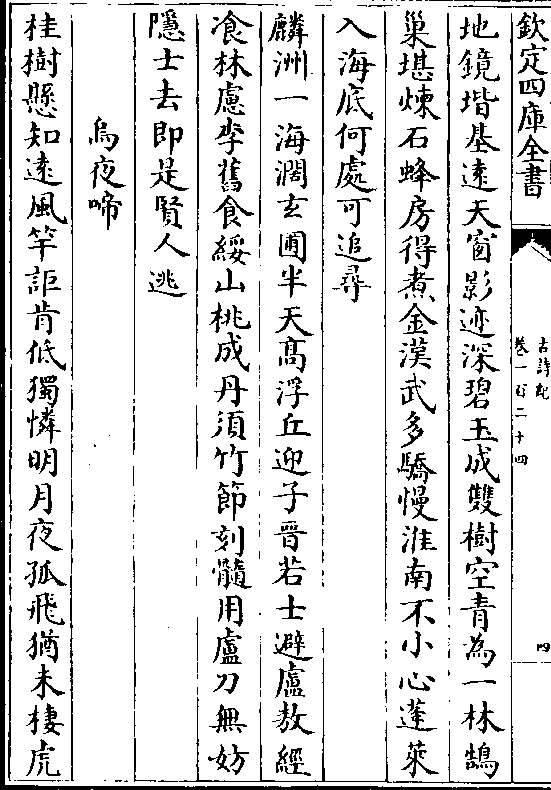 欽定四庫全書
古詩紀
卷一百二十四
四
地鏡堦基逺天窗影迹深碧玉成雙樹空青為一林鵠
巢堪煉石蜂房得煮金漢武多驕慢淮南不小心蓬萊
入海底何處可追尋
麟洲一海濶玄圃半天髙浮丘迎子晋若士避盧敖經
飡林慮李舊食綏山桃成丹須竹節刻髓用盧刀無妨
隱士去即是賢人逃
烏夜啼
桂樹懸知逺風竿詎肯低獨憐明月夜孤飛猶未棲虎